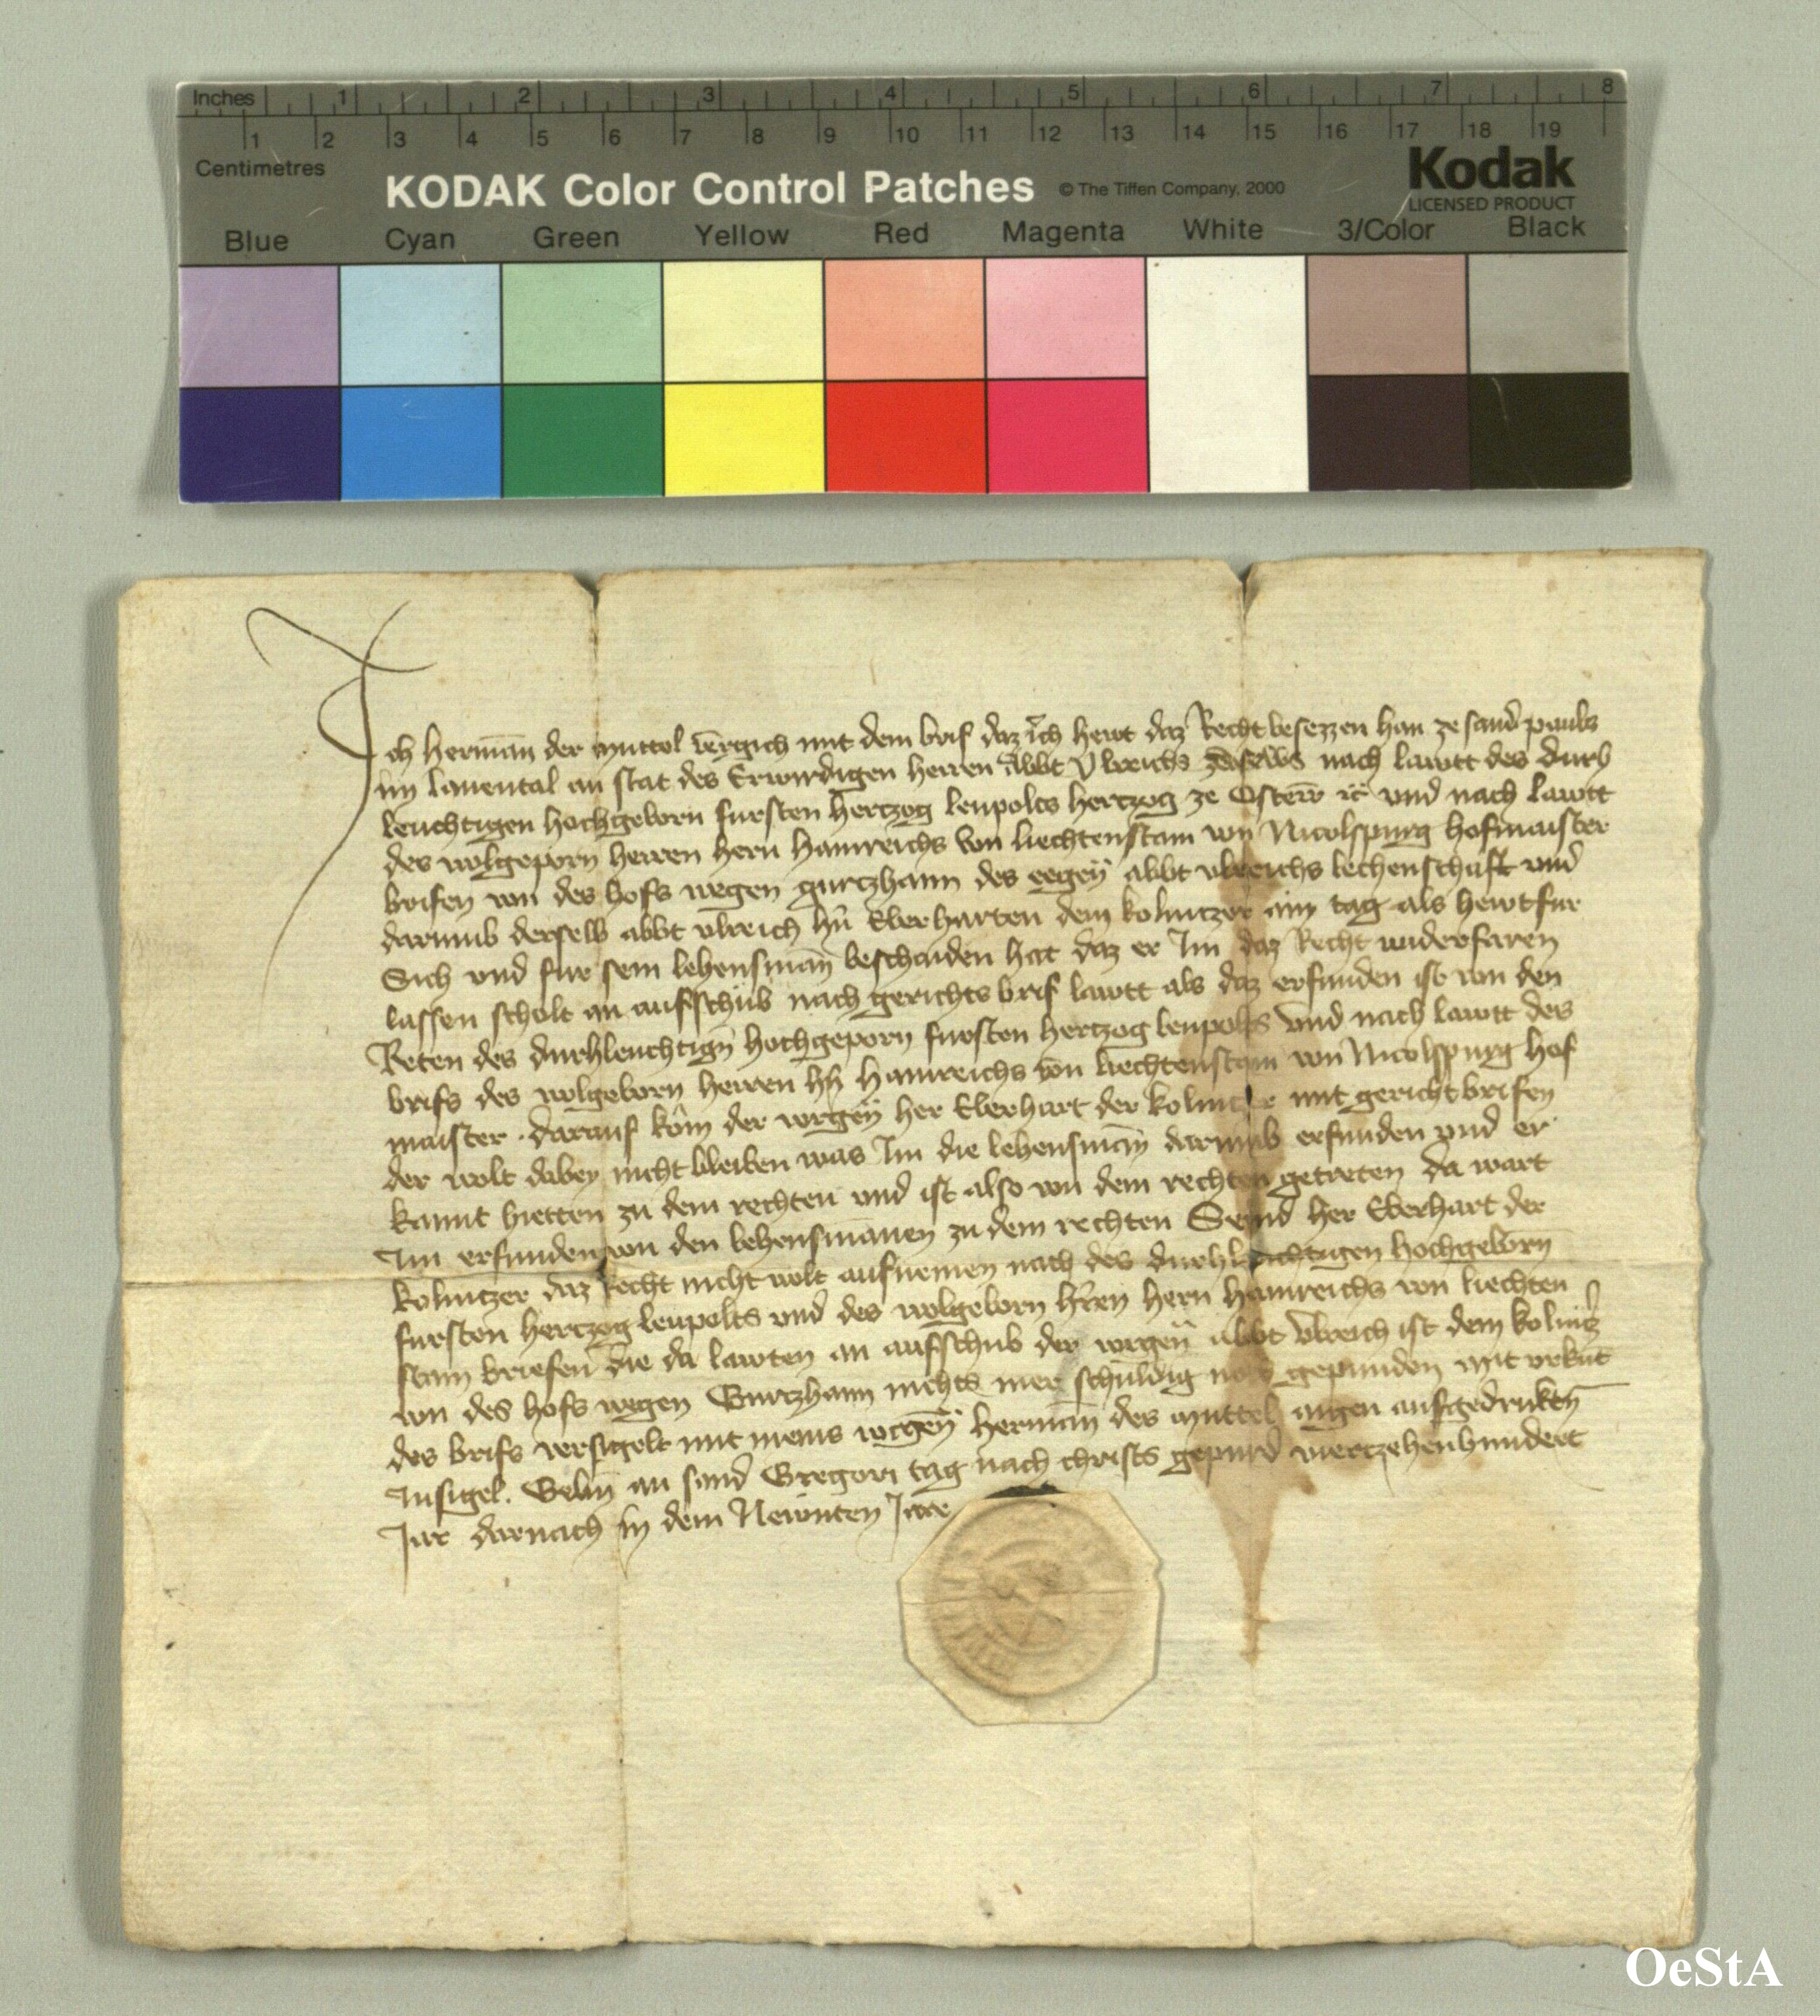 Inches 1 2 3 4 5 6 7 8
1 2 3 4 5 6 7 8 9 10 11 12 13 14 15 16 17 18 19
Centimetres
KODAK Color Control Patches © The Tiffen Company, 2000
Kodak
LICENSED PRODUCT
Blue Cyan Green Yellow Red Magenta White 3/Color Black
Ich Hermān der Muttel vergich mit dem brif daz ich hewt daz Recht besezzen han ze sand pauls
im lauental an stat des Erwirdigen herren Abbt Vlreichs nach lawtt des durh
leuchtigen hochgeborn fursten hertzog leupolts hertzog ze Osterr etc und nach lawtt
des wolgeporn herren hern hainreichs von liechtenstain von Nicolspurg hofmaister
brifen von des hofs wegen gurtzhaim des eegen abbt vlreichs lechenschaft und
darumb derselb abbt vlreich hn Eberharten dem kolnitzer ain tag als hewt fur
Sich und fur sein lehensman beschaiden hat daz er Im daz Recht widerfaren
lassen scholt an aufschub nach gerichts brif lawtt als daz erfunden ist von den
Reten des durhleuchtign hochgeporn fursten hertzog leupolts und nach lawtt des
brifs des wolgeborn herren hn hainreichs von liechtenstain von Nicolspurg hof
maister . darauf kom der vorgen her Eberhart der kolnitzer mit gericht brifen
der wolt dabey nicht bleiben was Im die lehensman darumb erfunden und er
kannt hietten zu dem rechten und ist also von dem rechten getreten da wart
Im erfunden von den lehensmanen zu dem rechten Seind her Eberhart der
kolnitzer daz Recht nicht wolt aufnemen nach des durhleuchtigen hochgeborn
fursten hertzog leupolts und des wolgeborn hren hern hainreichs von liechten
stain briefen die da lawten an aufschub der vorgen abbt vlreich ist dem kolnitz
von des hofs wegen Gurtzhaim nichts mer schuldig noch gepunden mit vrkut
des brifs versigelt mit meins vorgen herman des Muttel aigen aufgedrukten
Insigel. Gebn an sand Gregori tag nach christs gepurd vierczehenhundert
Jar darnach in dem Newnten Jare
OeStA